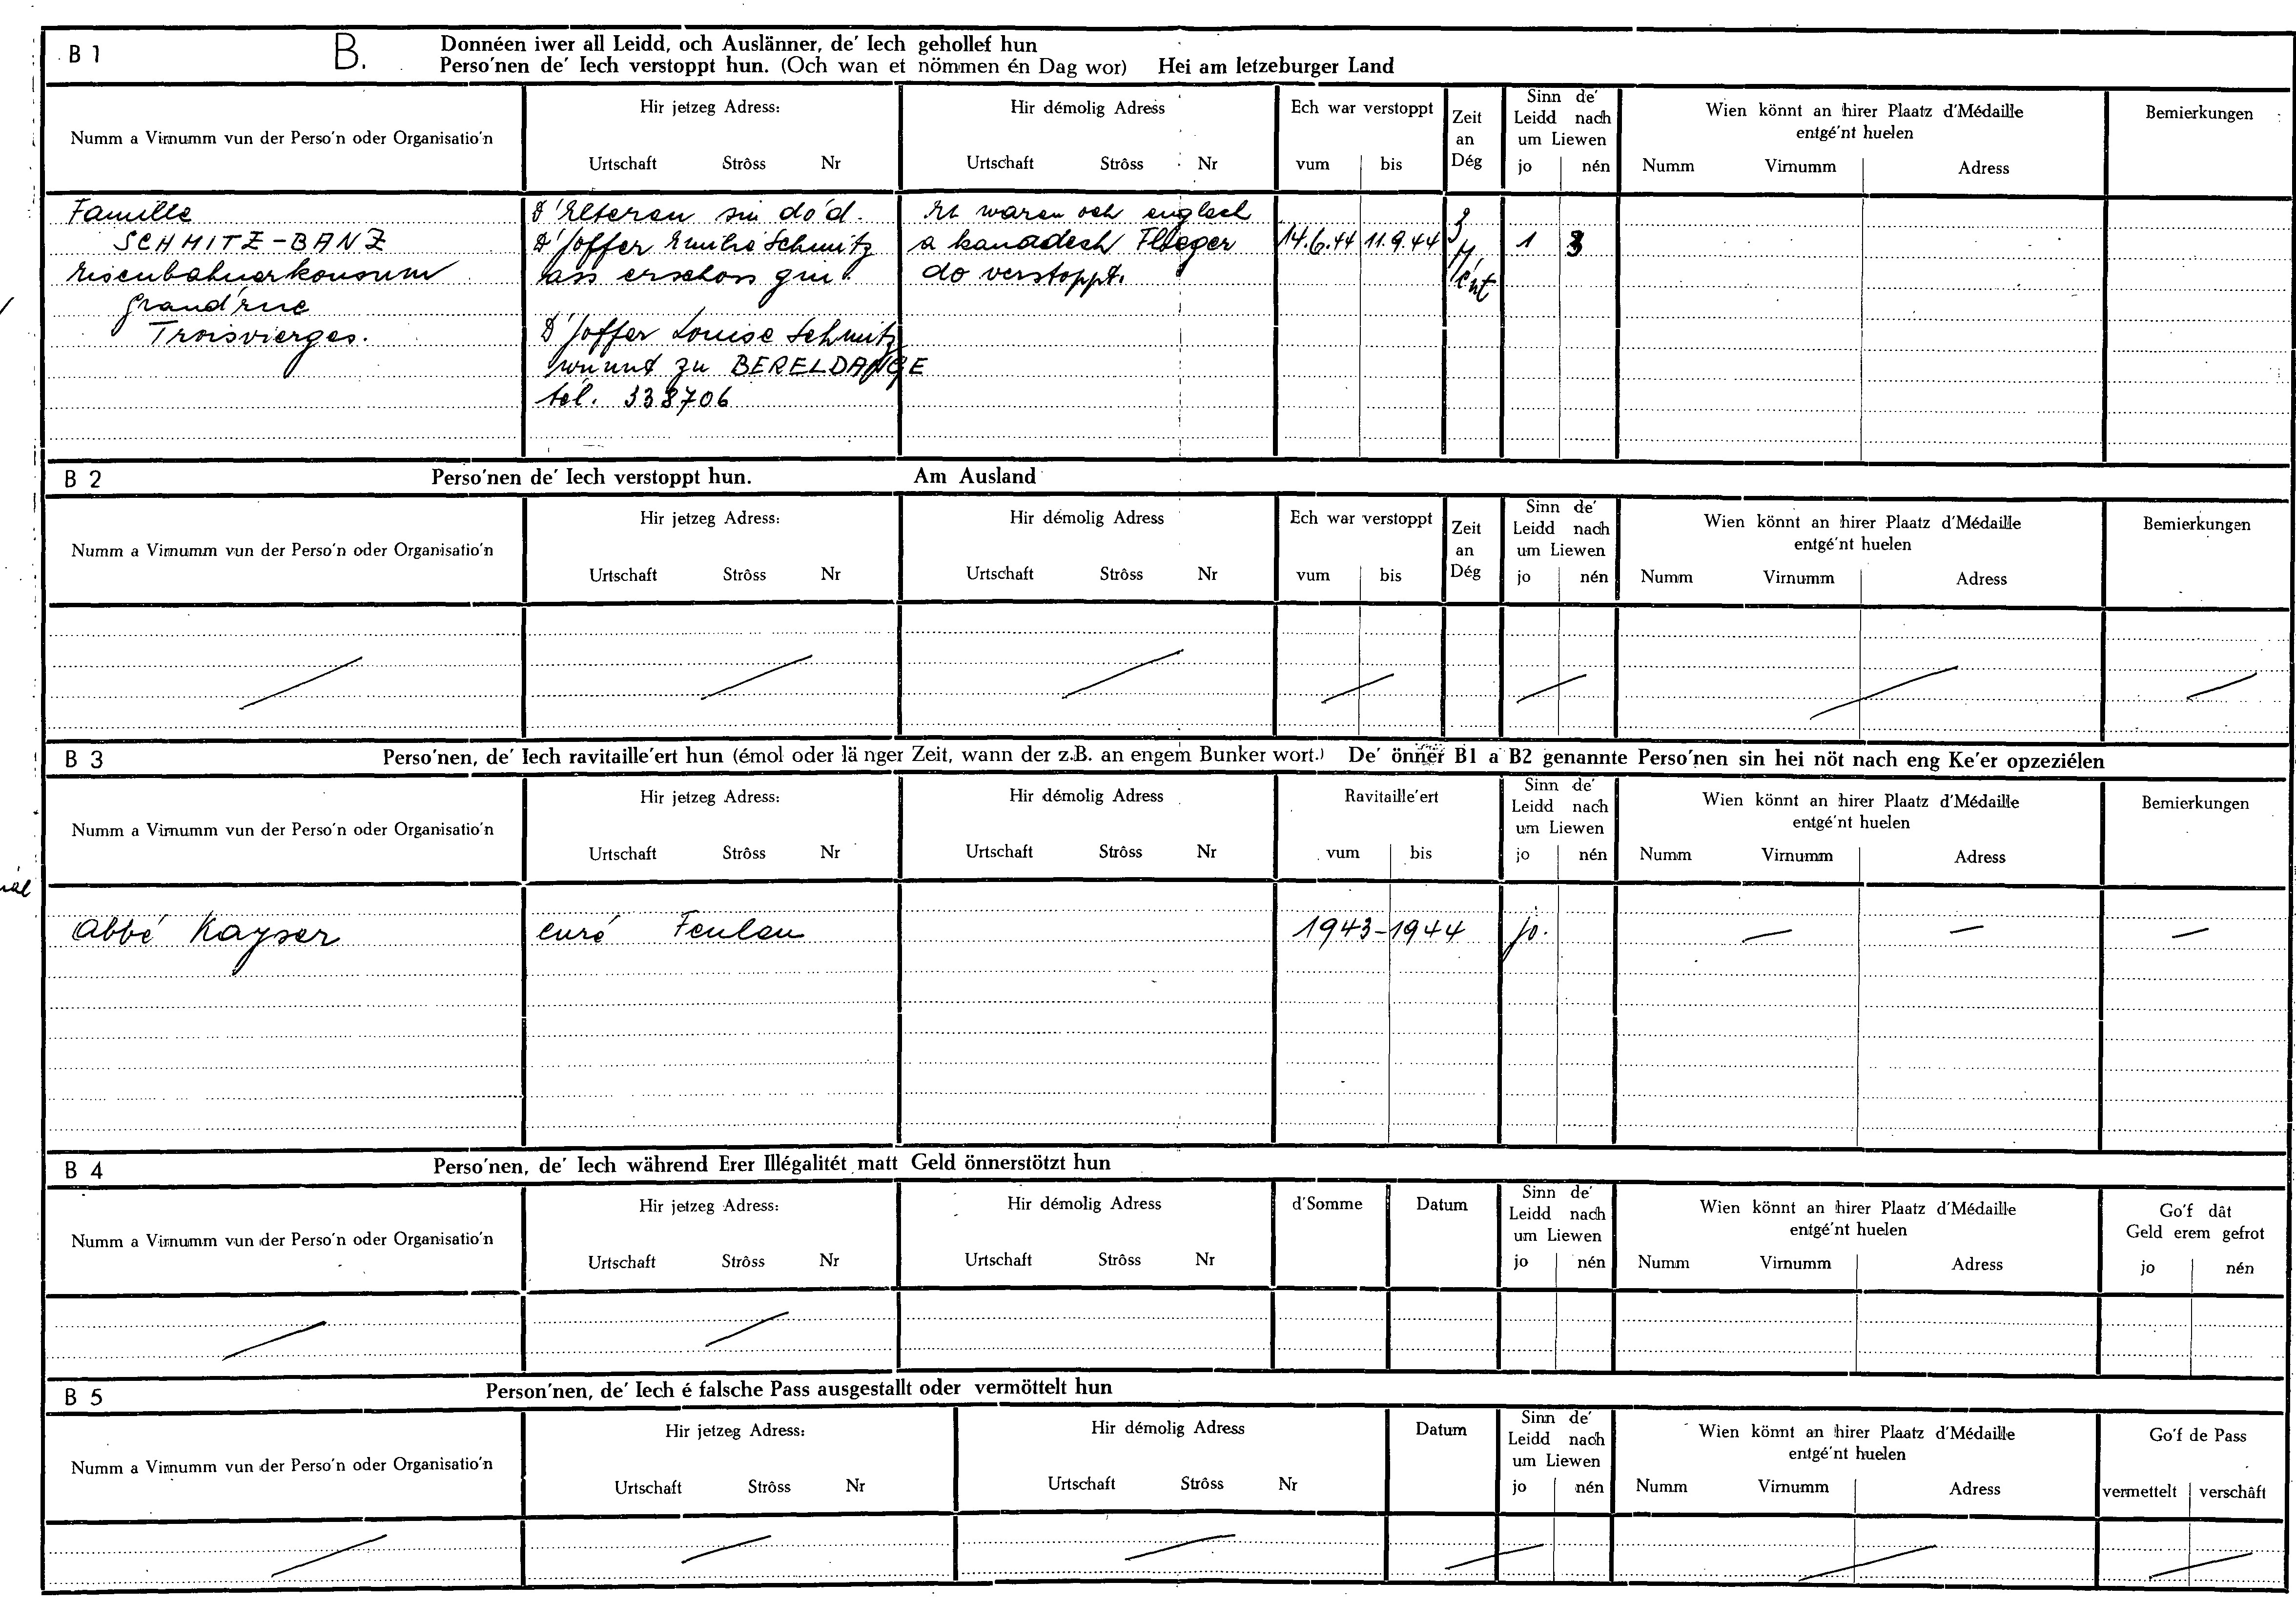 B 1 B. Donnéen iwer all Leidd, och Auslänner, de' Iech gehollef hun
Perso'nen de' Iech verstoppt hun. (Och wan et nömmen én Dag wor) Hei am letzeburger Land
Numm a Virnumm vun der Perso'n oder Organisatio'n
Hir jetzeg Adress:
Urtschaft Strôss Nr
Hir démolig Adress
Urtschaft Strôss Nr
Ech war verstoppt
vum bis
Zeit
an
Dég
Sinn de'
Leidd nach
um Liewen
jo nén
Wien könnt an hirer Plaatz d'Médaille
entgé'nt huelen
Numm Virnumm Adress
Bemierkungen
Famille
SCHMITZ-BANZ
Eisenbahnerkonsum
Grand'rue
Troisvierges.
D'Elteren sin do'd.
D'Joffer Emilie Schmitz
ass erschoss gin.
D'Joffer Louise Schmitz
wunnt zu BERELDANGE
tél. 338706
Et waren och englesch
a kanadesch Flieger
do verstoppt.
14.6.44 11.9.44
3
M
é'nt
1 3
B 2 Perso'nen de' Iech verstoppt hun. Am Ausland
Numm a Virnumm vun der Perso'n oder Organisatio'n
Hir jetzeg Adress:
Urtschaft Strôss Nr
Hir démolig Adress
Urtschaft Strôss Nr
Ech war verstoppt
vum bis
Zeit
an
Dég
Sinn de'
Leidd nach
um Liewen
jo nén
Wien könnt an hirer Plaatz d'Médaille
entgé'nt huelen
Numm Virnumm Adress
Bemierkungen
B 3 Perso'nen, de' Iech ravitaille'ert hun (émol oder länger Zeit, wann der z.B. an engem Bunker wort.) De' önner B1 a B2 genannte Perso'nen sin hei nöt nach eng Ke'er opzeziélen
Numm a Virnumm vun der Perso'n oder Organisatio'n
Hir jetzeg Adress:
Urtschaft Strôss Nr
Hir démolig Adress
Urtschaft Strôss Nr
Ravitaille'ert
vum bis
Sinn de'
Leidd nach
um Liewen
jo nén
Wien könnt an hirer Plaatz d'Médaille
entgé'nt huelen
Numm Virnumm Adress
Bemierkungen
Abbé Kayser curé Feulen 1943-1944 jo. — — —
B 4 Perso'nen, de' Iech während Erer Illégalitét matt Geld önnerstötzt hun
Numm a Virnumm vun der Perso'n oder Organisatio'n
Hir jetzeg Adress:
Urtschaft Strôss Nr
Hir démolig Adress
Urtschaft Strôss Nr
d'Somme
Datum
Sinn de'
Leidd nach
um Liewen
jo nén
Wien könnt an hirer Plaatz d'Médaille
entgé'nt huelen
Numm Virnumm Adress
Go'f dât
Geld erem gefrot
jo nén
B 5 Person'nen, de' Iech é falsche Pass ausgestallt oder vermöttelt hun
Numm a Virnumm vun der Perso'n oder Organisatio'n
Hir jetzeg Adress:
Urtschaft Strôss Nr
Hir démolig Adress
Urtschaft Strôss Nr
Datum
Sinn de'
Leidd nach
um Liewen
jo nén
Wien könnt an hirer Plaatz d'Médaille
entgé'nt huelen
Numm Virnumm Adress
Go'f de Pass
vermettelt verschâft